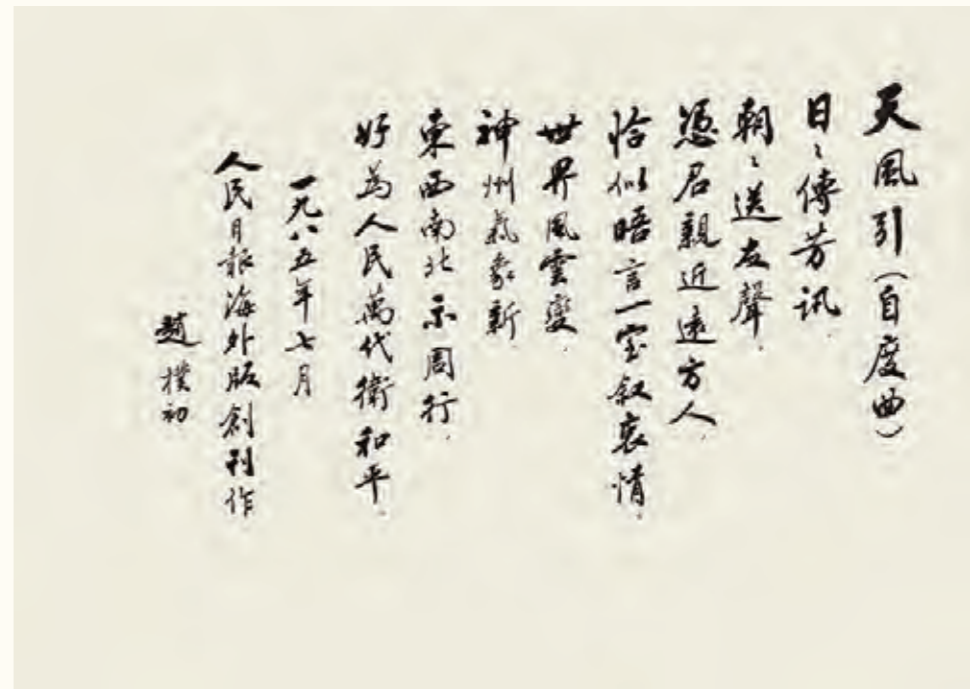 天風引（自度曲）
日〻傳芳訊．
朝〻送友聲．
憑君親近遠方人．
恰似晤言一室叙衷情．
世界風雲變．
神州氣象新．
東西南北示周行．
好為人民萬代衛和平．
一九八五年七月
人民日報海外版創刊作
趙樸初